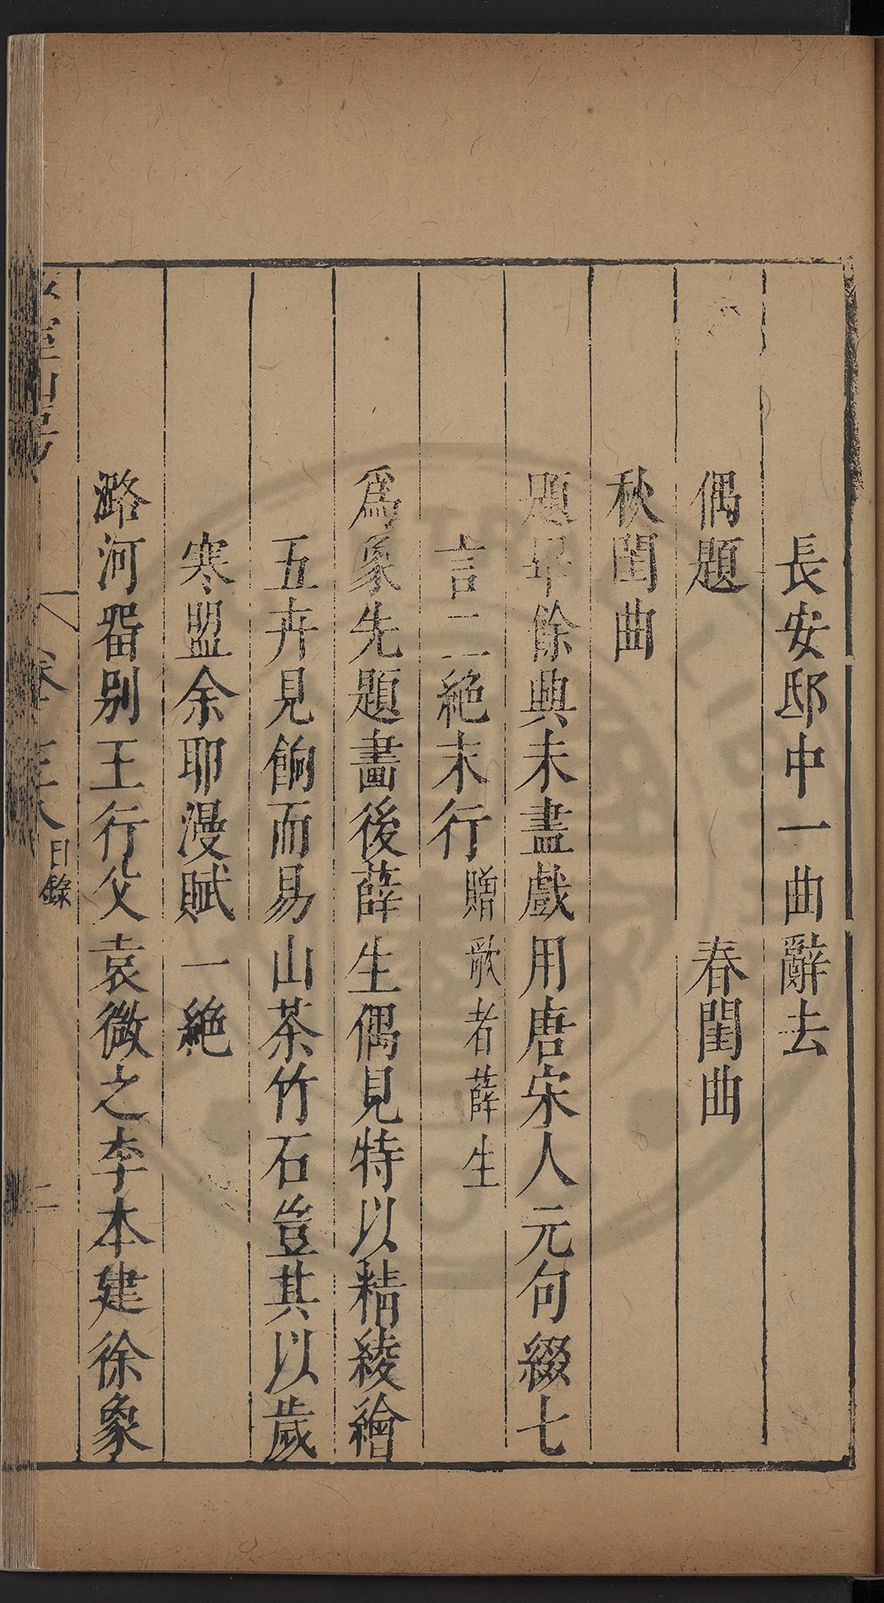 長安邸中一曲辭去
偶題 春閨曲
秋閨曲
題畢餘興未盡戲用唐宋人元句綴七
言二絶末行贈歌者薛生
爲象先題畵後薛生偶見特以精綾繪
五卉見餉而易山茶竹石豈其以歲
寒盟余耶漫賦一絶
潞河畱别王行父袁微之李本建徐象
山房 卷 目錄 二